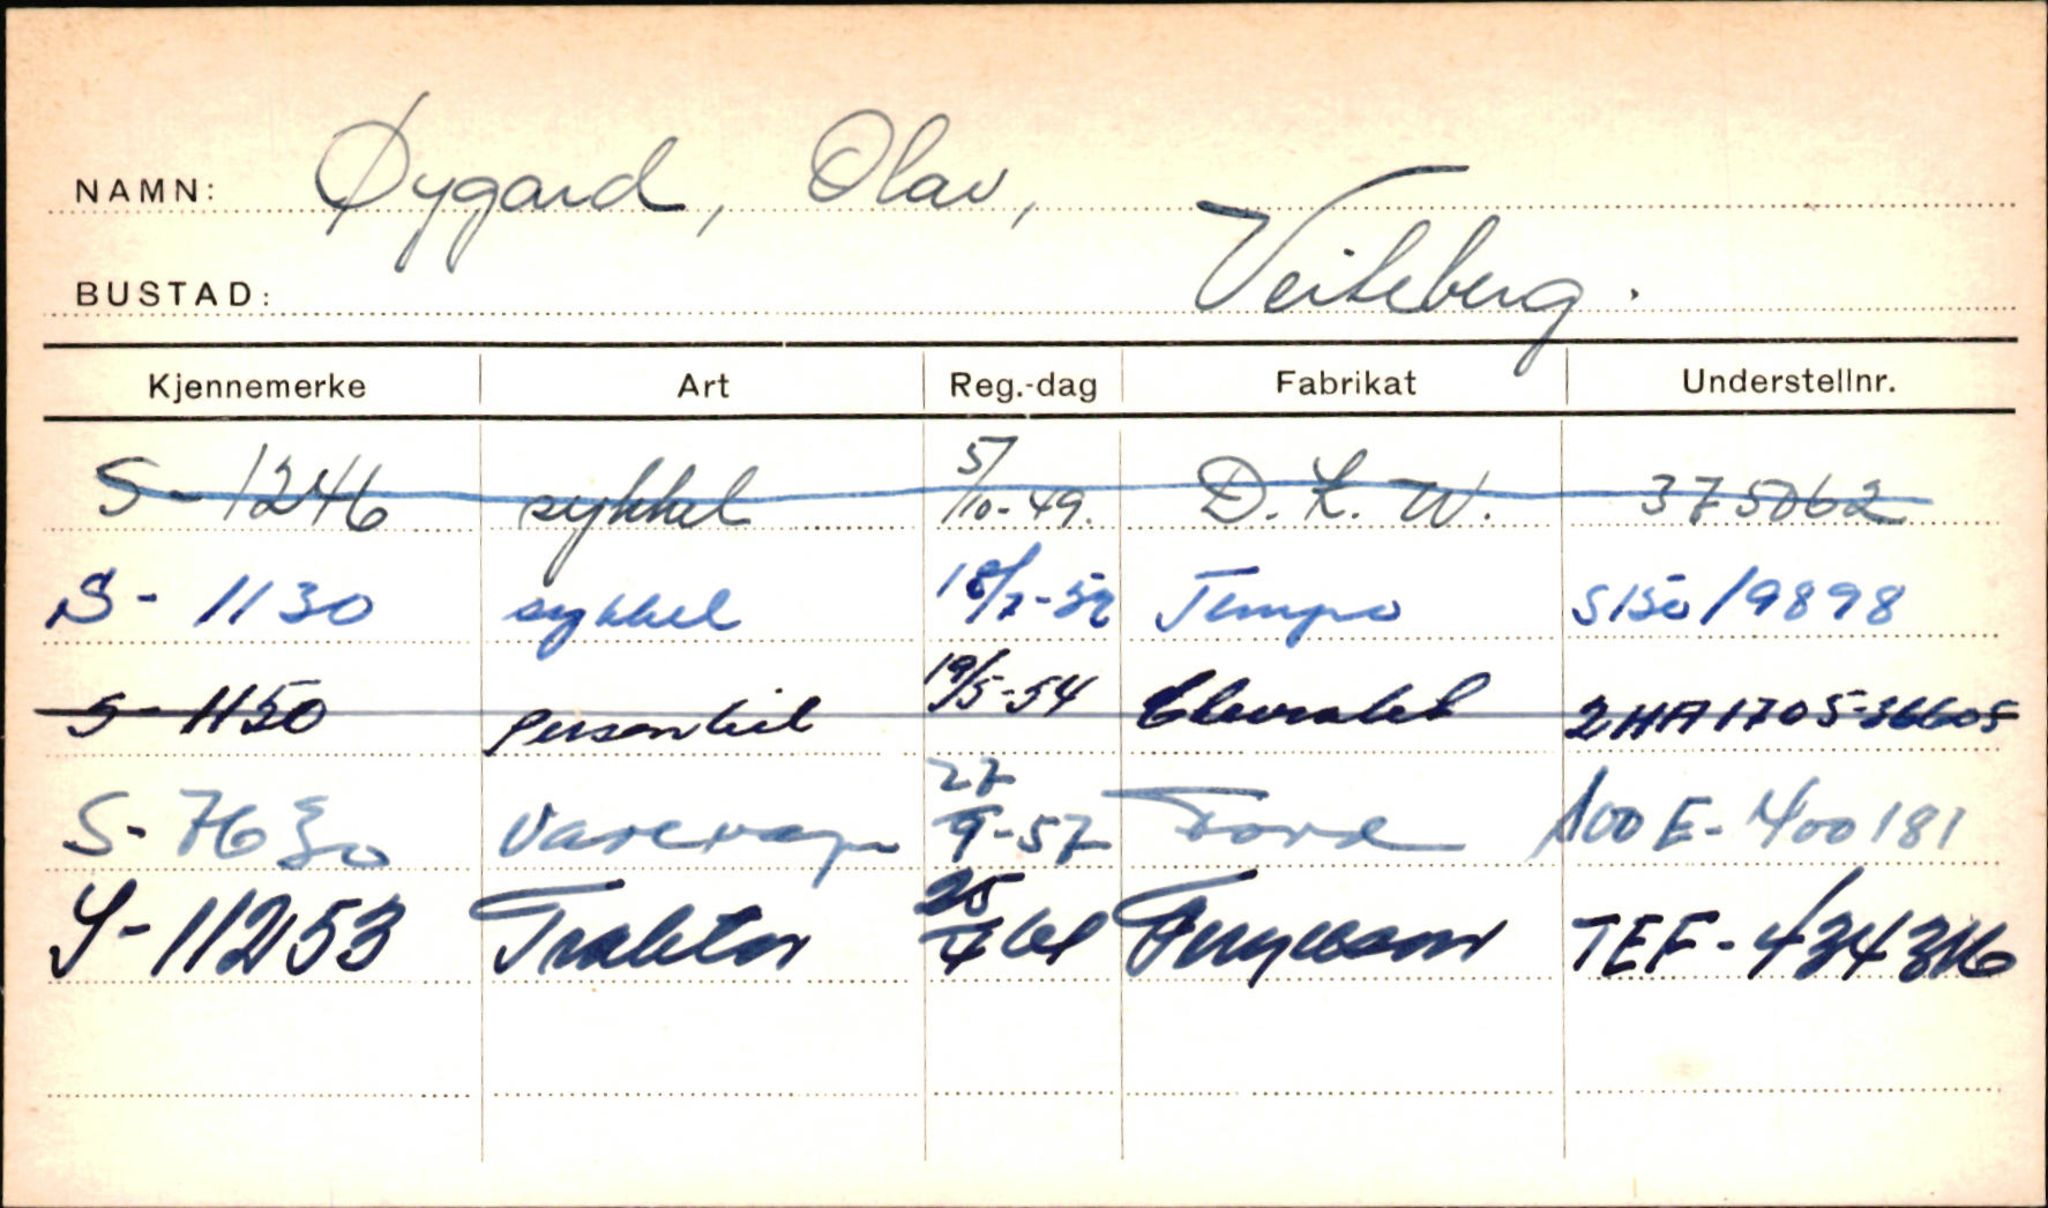 NAMN: Øygard, Olav,
BUSTAD: Veiteberg.
Kjennemerke Art Reg.-dag Fabrikat Understellnr.
S-1246 sykkel 5/10-49. D.K.W. 375062
S-1130 sykkel 18/7-52 Tempo S150/9898
S-1150 personbil 19/5-54 Chevrolet 2HA1705-36605
S-7630 Varevogn 27/9-57 Ford 100E-400181
S-11253 Traktor 25/4 61 Ferguson TEF-434316